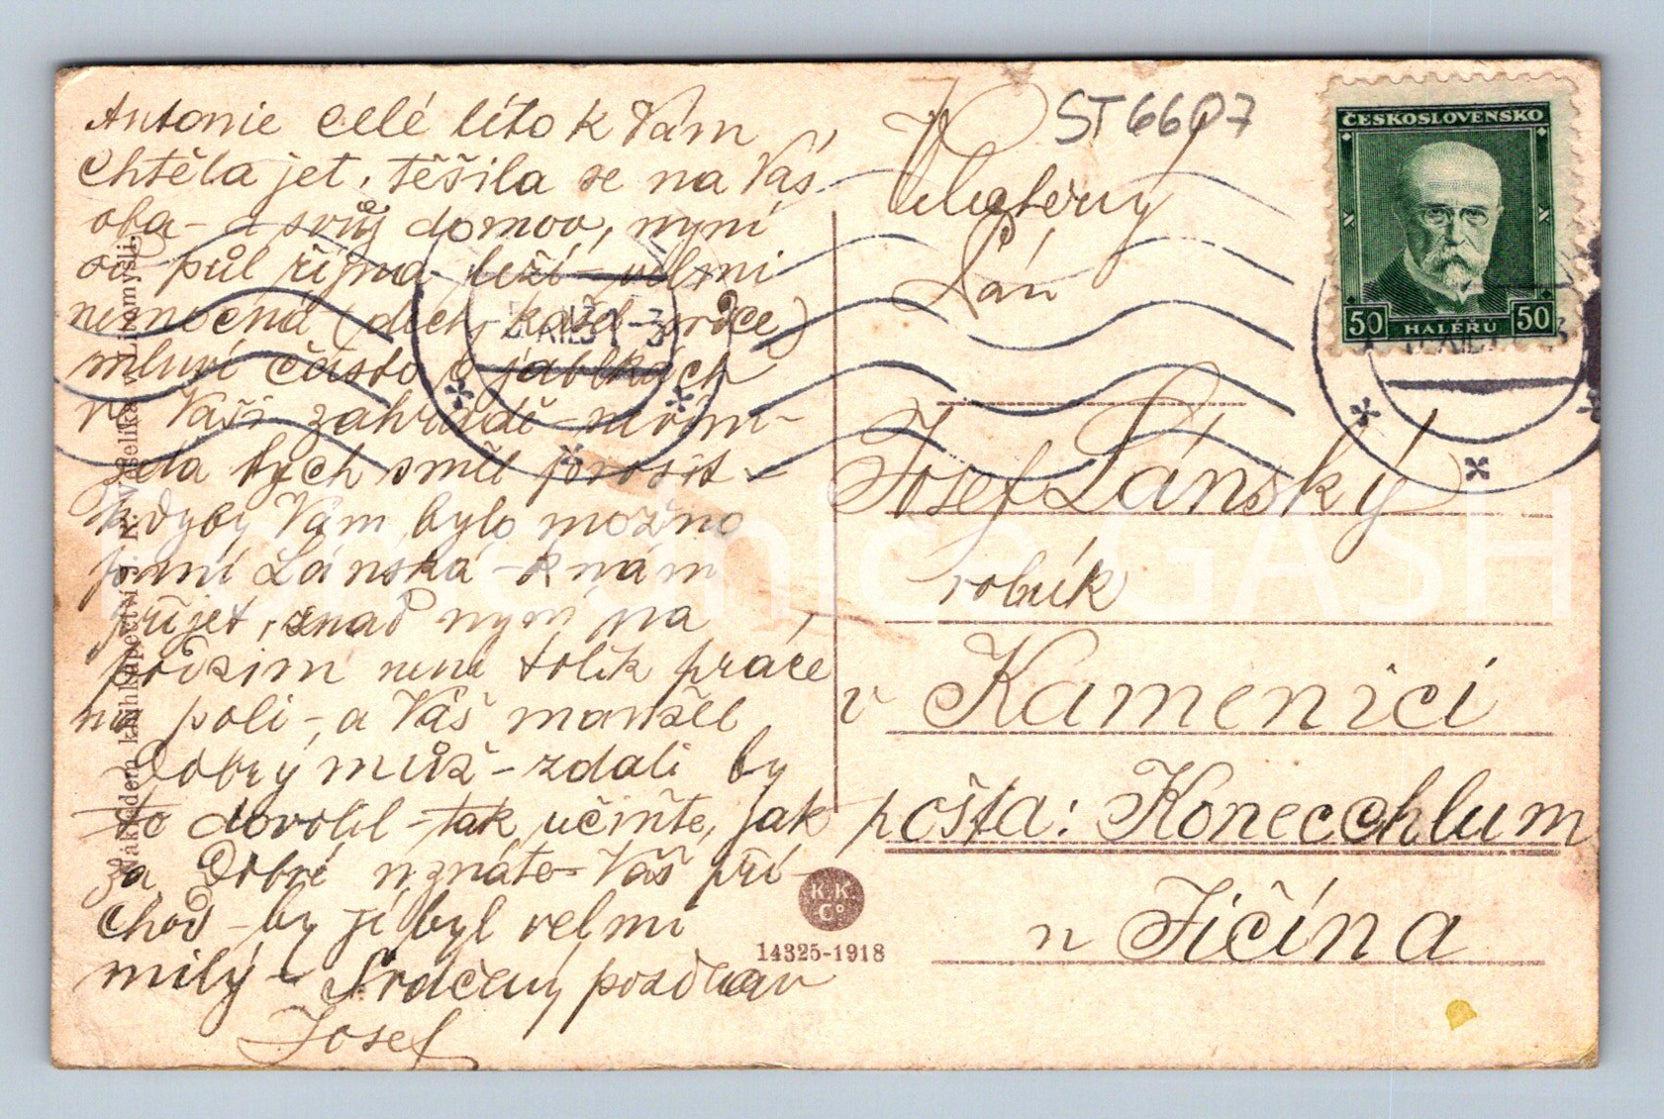 Antonie celé léto k Vám
chtěla jet, těšila se na Vás
oba - a svůj domov, nyní
od půl října leží - velmi
nemocná (dech, kašel - srdce)
mluví často o jablkách
ve Vaší zahradě - nevím -
zda bych směl prosit -
kdyby Vám bylo možno
paní Lánská - k nám
přijet, snad nyní na
podzim není tolik práce
na poli - a Váš manžel
Dobrý muž - zdali by
to dovolil - tak učiňte, jak
za Dobré uznáte - Váš pří-
chod - by jí byl velmi
milý - Srdečný pozdrav
Josef
Nákladem knihkupectví J. R. Veselíka v Litomyšli.
ST6607
Velectěný
Pán
ČESKOSLOVENSKO
50 HALÉŘŮ 50
XII.31-3
Josef Lánský
rolník
v Kamenici
pošta: Konecchlum
u Jičína
K.K.
Co
14325-1918
Pohlednice GASH